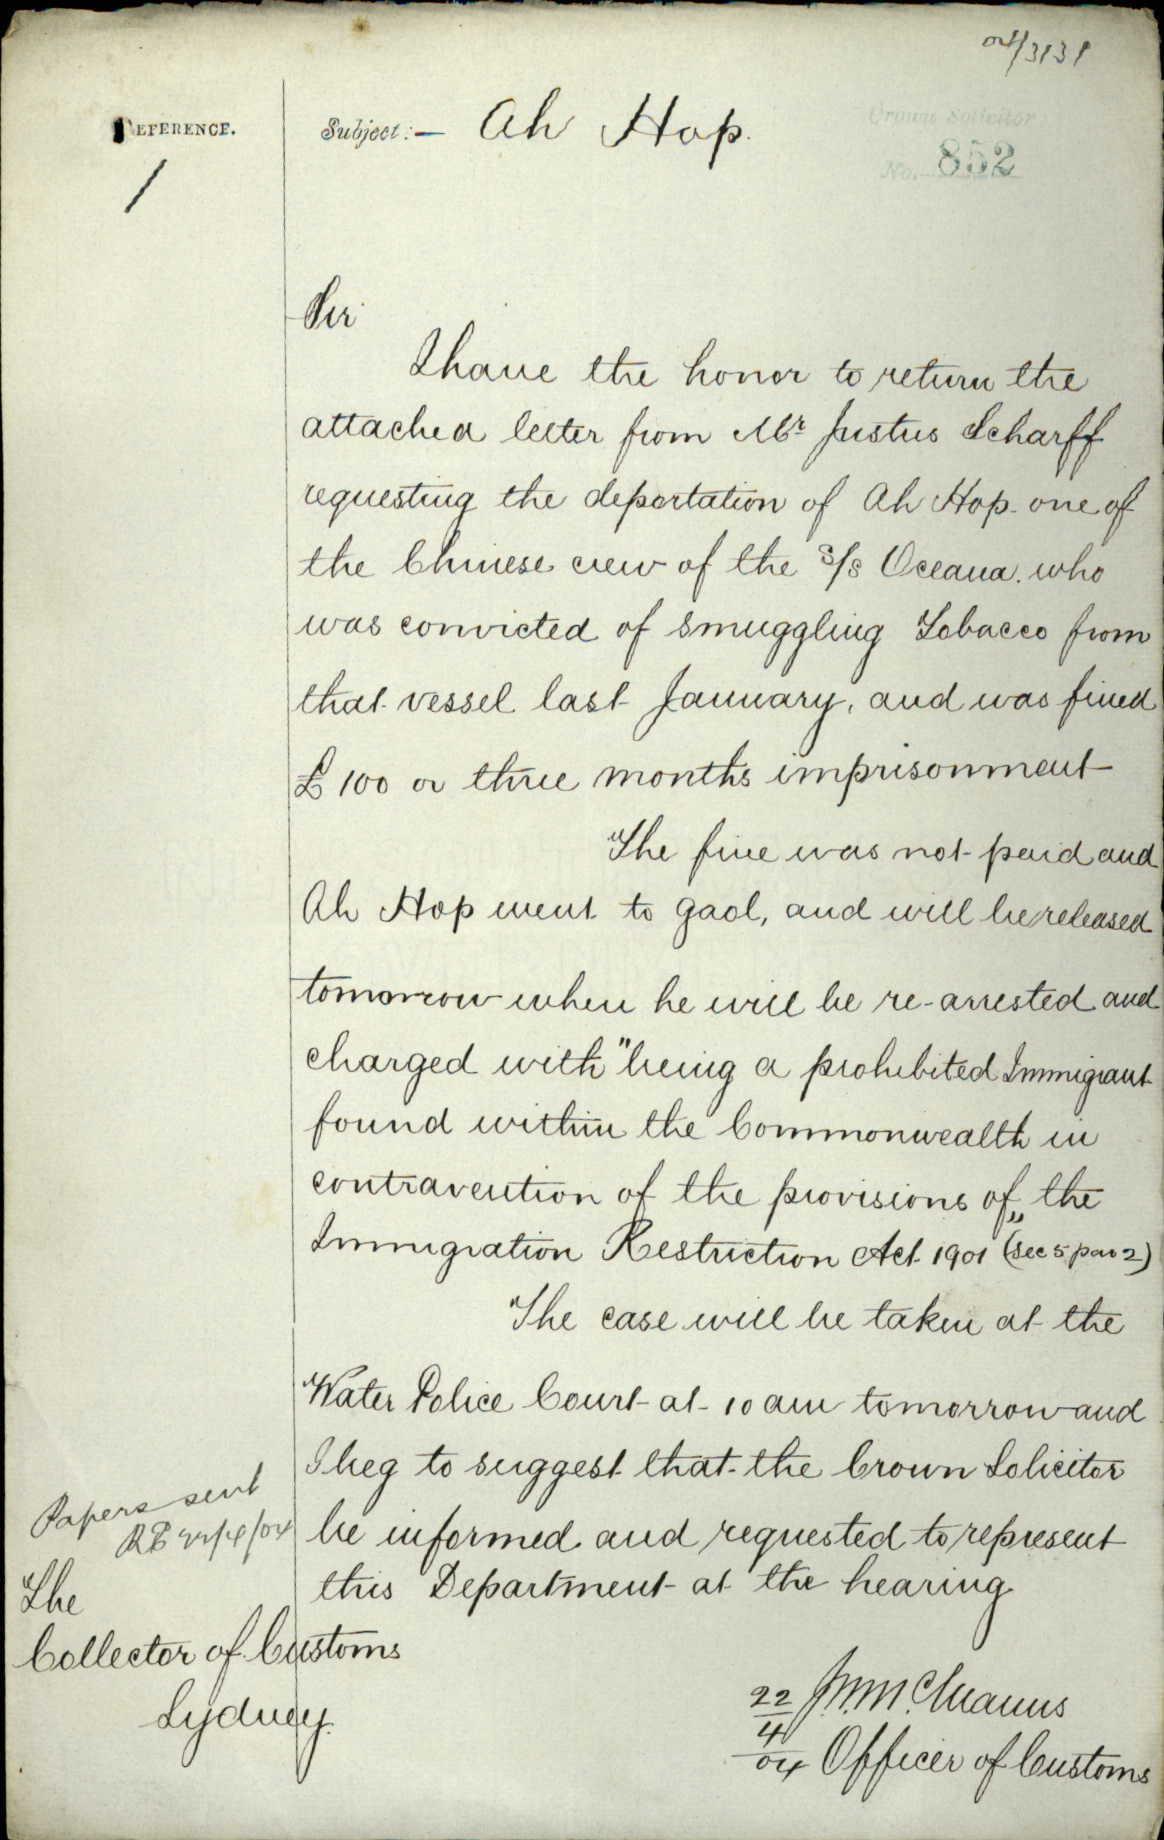 04/3131
REFERENCE.
1
Subject:— Ah Hop.
Crown Solicitor
No. 852
Sir
I have the honor to return the
attached letter from Mr Justus Scharff
requesting the deportation of Ah Hop one of
the Chinese crew of the S/S Oceana. who
was convicted of smuggling Tobacco from
that vessel last January, and was fined
£100 or three months imprisonment
The fine was not paid and
Ah Hop went to gaol, and will be released
tomorrow when he will be re-arrested and
charged with "being a prohibited Immigrant
found within the Commonwealth in
contravention of the provisions of the
Immigration Restriction Act 1901" (Sec 5 par 2)
The case will be taken at the
Water Police Court at 10 am tomorrow and
I beg to suggest that the Crown Solicitor
be informed and requested to represent
this Department at the hearing
Papers sent
22/4/04
The
Collector of Customs
Sydney.
22/4/04 McManus
Officer of Customs